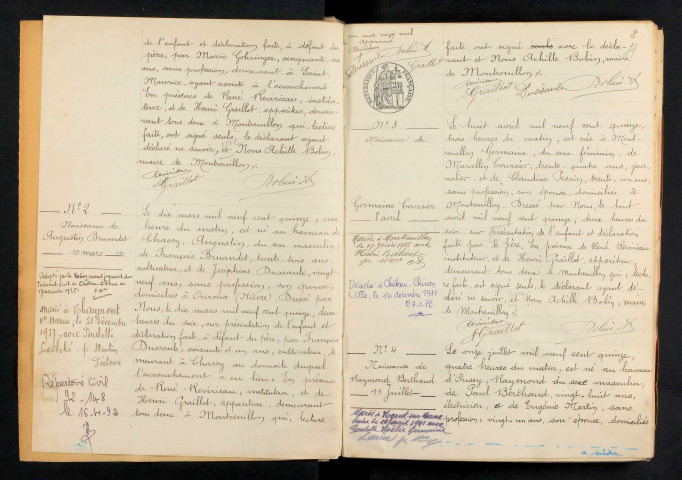 de l'enfant et déclaration faite, à défaut du
père, par Marie Gohringer, cinquante six
ans, sans profession, demeurant à Saint
Maurice, ayant assisté à l'accouchement.
En présence de René Revirieau, institu-
teur, et de Henri Graillot, appariteur, demeu-
rant tous deux à Montreuillon, qui, lecture
faite, ont signé seuls, le déclarant ayant
déclaré ne savoir, et Nous Achille Bobin,
maire de Montreuillon.
Graillot
N° 2
Naissance de
Augustin Bruandet
10 mars
Le dix mars mil neuf cent quinze, une
heure du matin, est né au hameau de
Chassy, Augustin, du sexe masculin,
de François Bruandet, trente-trois ans,
cultivateur, et de Joséphine Dussaule, vingt
neuf ans, sans profession, son épouse,
domiciliés à Ouroux (Nièvre). Dressé par
Nous, le dix mars mil neuf cent quinze, deux
heures du soir, sur présentation de l'enfant et
déclaration faite, à défaut du père, par François
Dussaule, soixante et un ans, cultivateur, de-
meurant à Chassy au domicile duquel
l'accouchement a eu lieu. En présence
de René Revirieau, instituteur, et de
Henri Graillot, appariteur, demeurant
tous deux à Montreuillon qui, lecture
Marié à Chaumont
Hte Marne, le 21 décembre
1937, avec
Répertoire Civil
92-148
le 16-11-92
approuvé
Graillot
RÉPUBLIQUE FRANÇAISE
faite, ont signé avec le décla-
rant et Nous Achille Bobin, maire
de Montreuillon.
Graillot Dussaule
N° 3
Naissance de
Germaine Coursier
8 avril
Le huit avril mil neuf cent quinze,
trois heures du matin, est née à Mont-
reuillon Germaine, du sexe féminin, de
Marcellin Coursier, trente quatre ans, jour-
nalier, et de Claudine Pessin, trente un ans,
sans profession, son épouse, domiciliés à
Montreuillon. Dressé par Nous, le huit
avril mil neuf cent quinze, deux heures du
soir, sur présentation de l'enfant et déclaration
faite par le père. En présence de René Revirieau
instituteur, et de Henri Graillot, appariteur,
demeurant tous deux à Montreuillon qui, lectu-
re faite, ont signé seuls, le déclarant ayant dé-
claré ne savoir, et Nous Achille Bobin, maire
de Montreuillon.
Graillot
Mariée à Montreuillon
Décédée à Château-Chinon
Ville, le 16 décembre 1971
27.1.72
N° 4
Naissance de
Raymond Berthaud
11 Juillet
Le onze juillet mil neuf cent quinze,
quatre heures du matin, est né au hameau
d'Oussy, Raymond du sexe masculin,
de Paul Berthaud, vingt huit ans,
électricien, et de Eugénie Martin, sans
profession, vingt un ans, son épouse, domiciliés
Marié à Nogent sur Marne